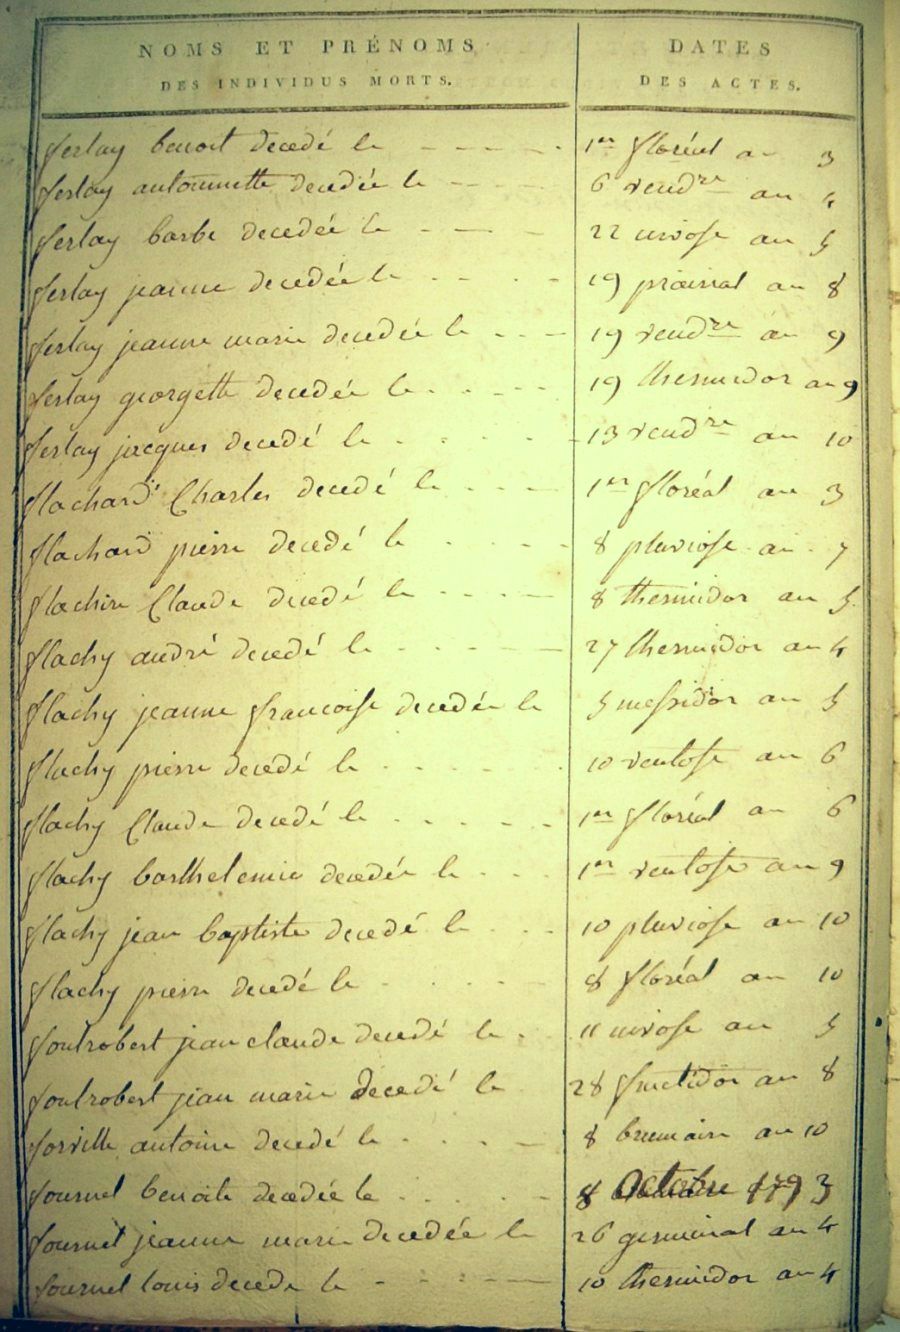 NOMS ET PRÉNOMS
DES INDIVIDUS MORTS.
DATES
DES ACTES.
ferlay benoit decedé le 1er floréal an 3
ferlay antoinnette decedée le 6 vendre an 4
ferlay barbe decedée le 22 nivose an 5
ferlay jeanne decedée le 19 prairial an 8
ferlay jeanne marie decedée le 19 vendre an 9
ferlay georgette decedée le 19 thermidor an 9
ferlay jacques decedé le 13 vendre an 10
flachard Charles decedé le 1er floréal an 3
flachard pierre decedé le 8 pluviose an 7
flachire Claude decedé le 8 thermidor an 5
flachy andré decedé le 27 thermidor an 4
flachy jeanne francoise decedée le 5 messidor an 5
flachy pierre decedé le 10 ventose an 6
flachy Claude decedé le 1er floréal an 6
flachy barthelemie decedée le 1er ventose an 9
flachy jean baptiste decedé le 10 pluviose an 10
flachy pierre decedé le 8 floréal an 10
foutrobert jean claude decedé le 11 nivose an 5
foutrobert jean marie decedé le 28 fructidor an 8
forville antoine decedé le 8 brumaire an 10
fournel benoite decedée le 8 Octobre 1793
fournel jeanne marie decedée le 26 germinal an 4
fournel louis decede le 10 thermidor an 4